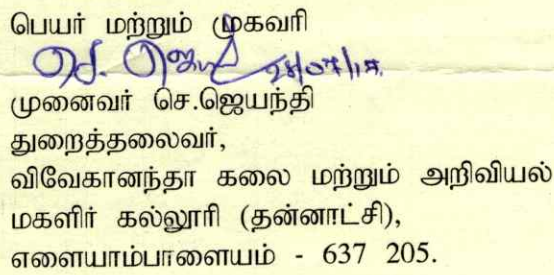 பெயர் மற்றும் முகவரி
செ. ஜெ 28/07/17
முனைவர் செ.ஜெயந்தி
துறைத்தலைவர்,
விவேகானந்தா கலை மற்றும் அறிவியல்
மகளிர் கல்லூரி (தன்னாட்சி),
எளையாம்பாளையம் - 637 205.